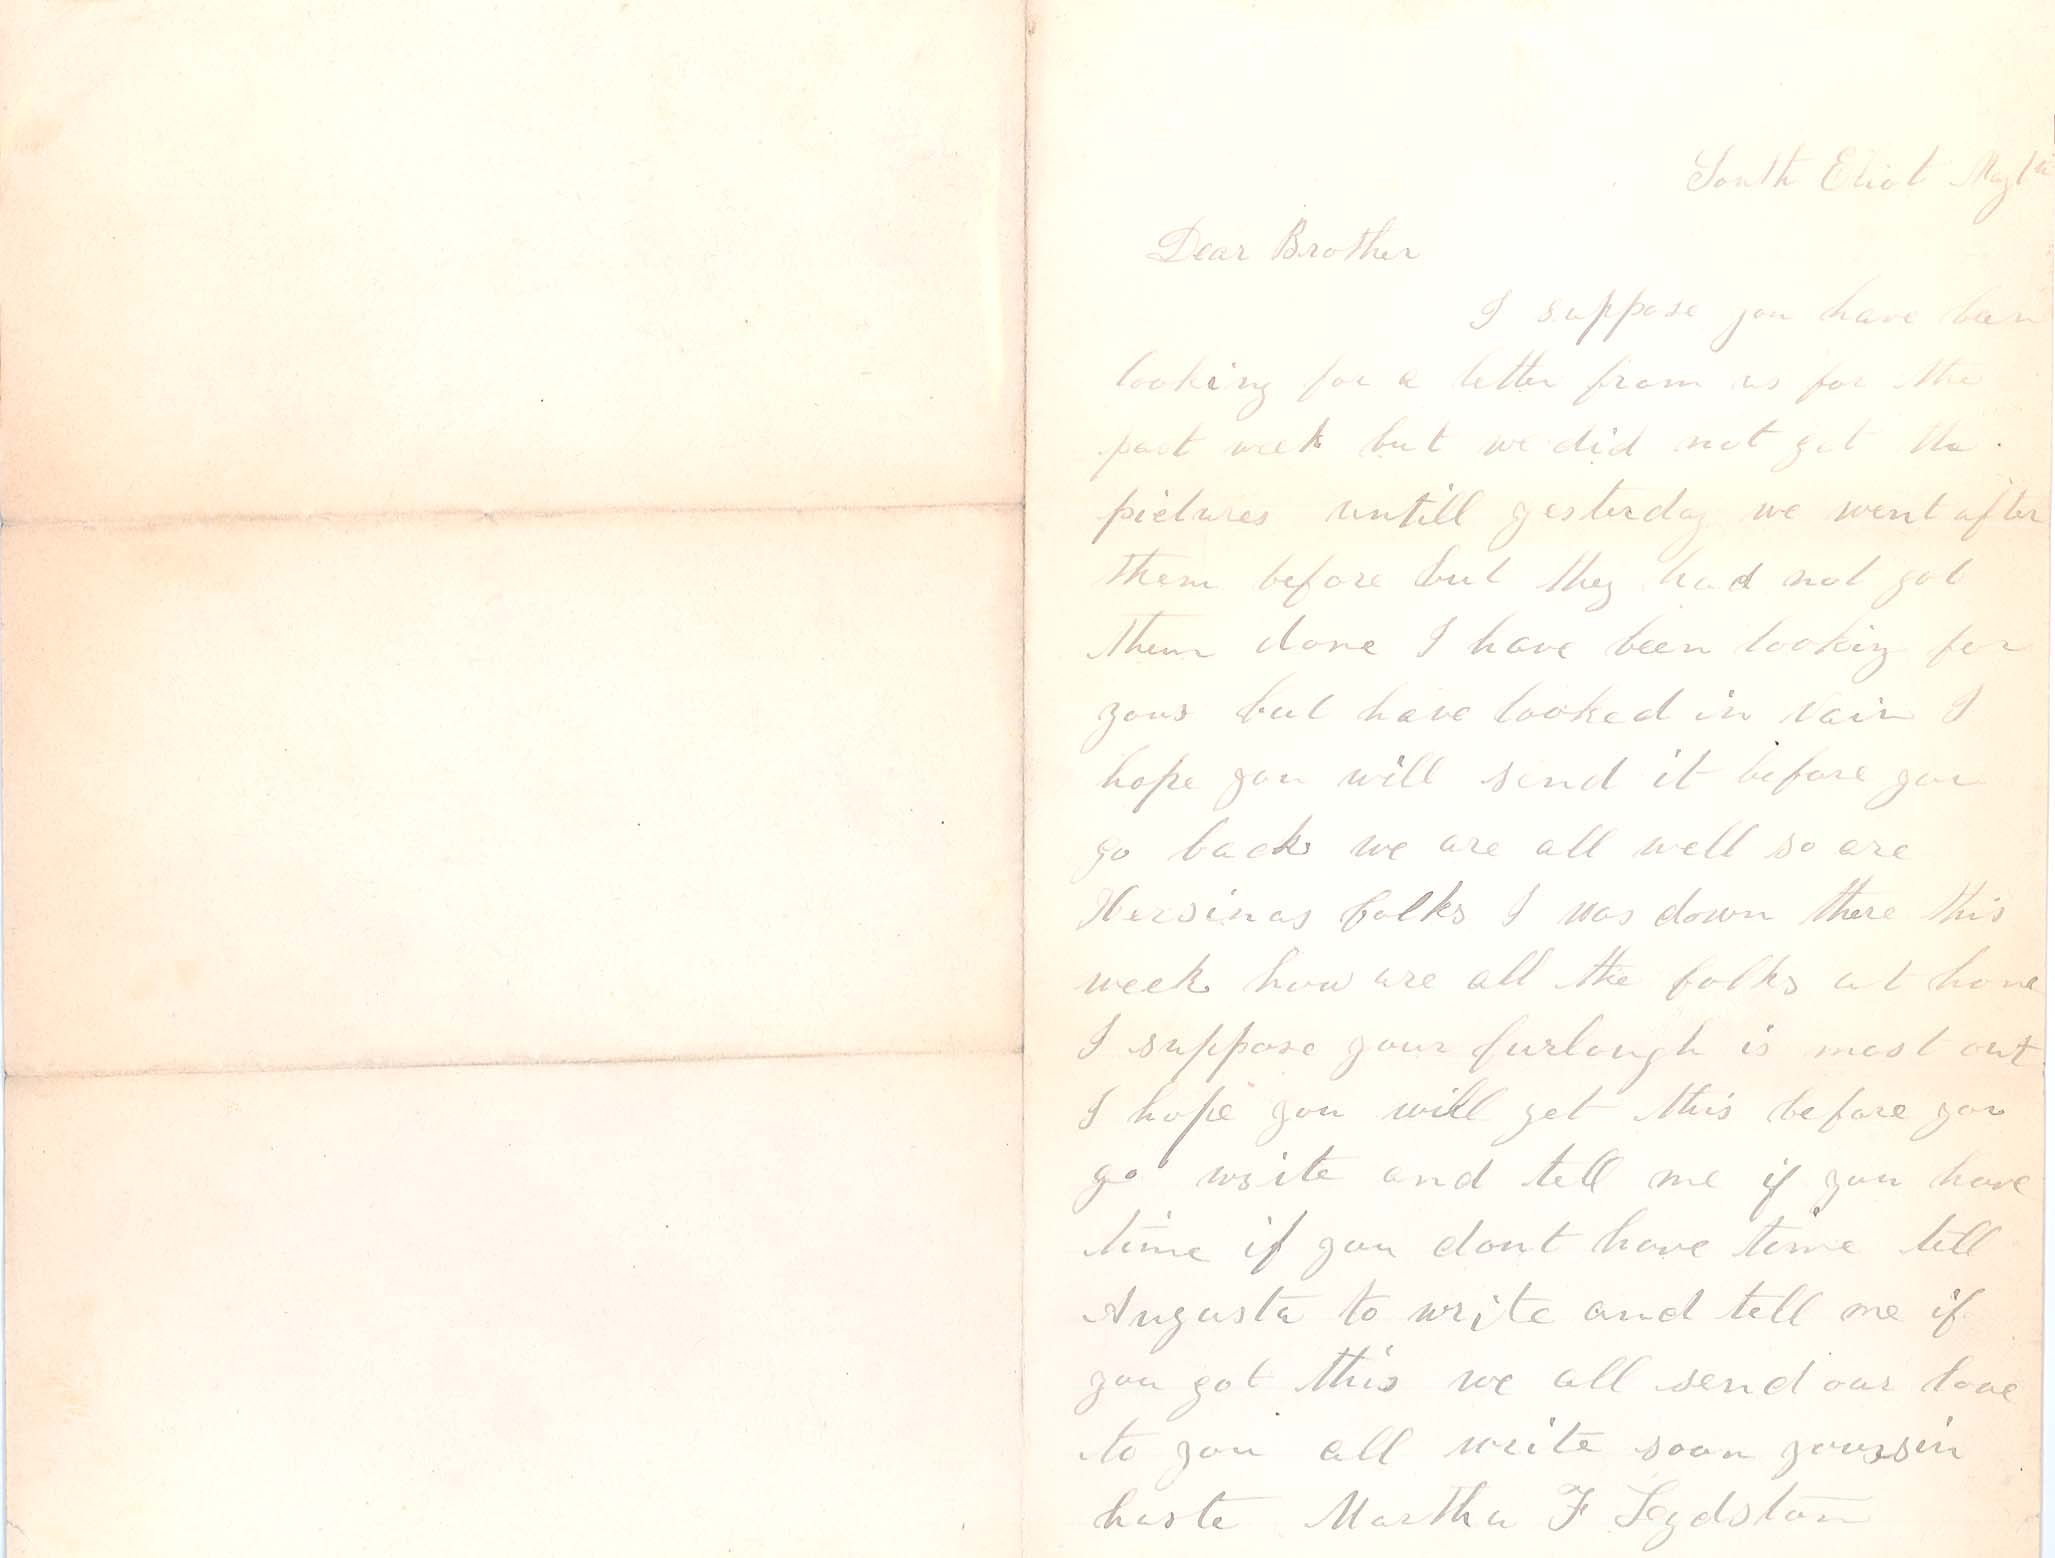 South Eliot May 1st
Dear Brother
I suppose you have been
looking for a letter from us for the
past week but we did not get the
pictures untill yesterday we went after
them before but they had not got
them done I have been looking for
yours but have looked in vain I
hope you will send it before you
go back we are all well so are
folks I was down there this
week how are all the folks at home
I suppose your furlough is most out
I hope you will get this before you
go write and tell me if you have
time if you dont have time tell
Augusta to write and tell me if
you got this we all send our love
to you all write soon yours in
haste Martha F